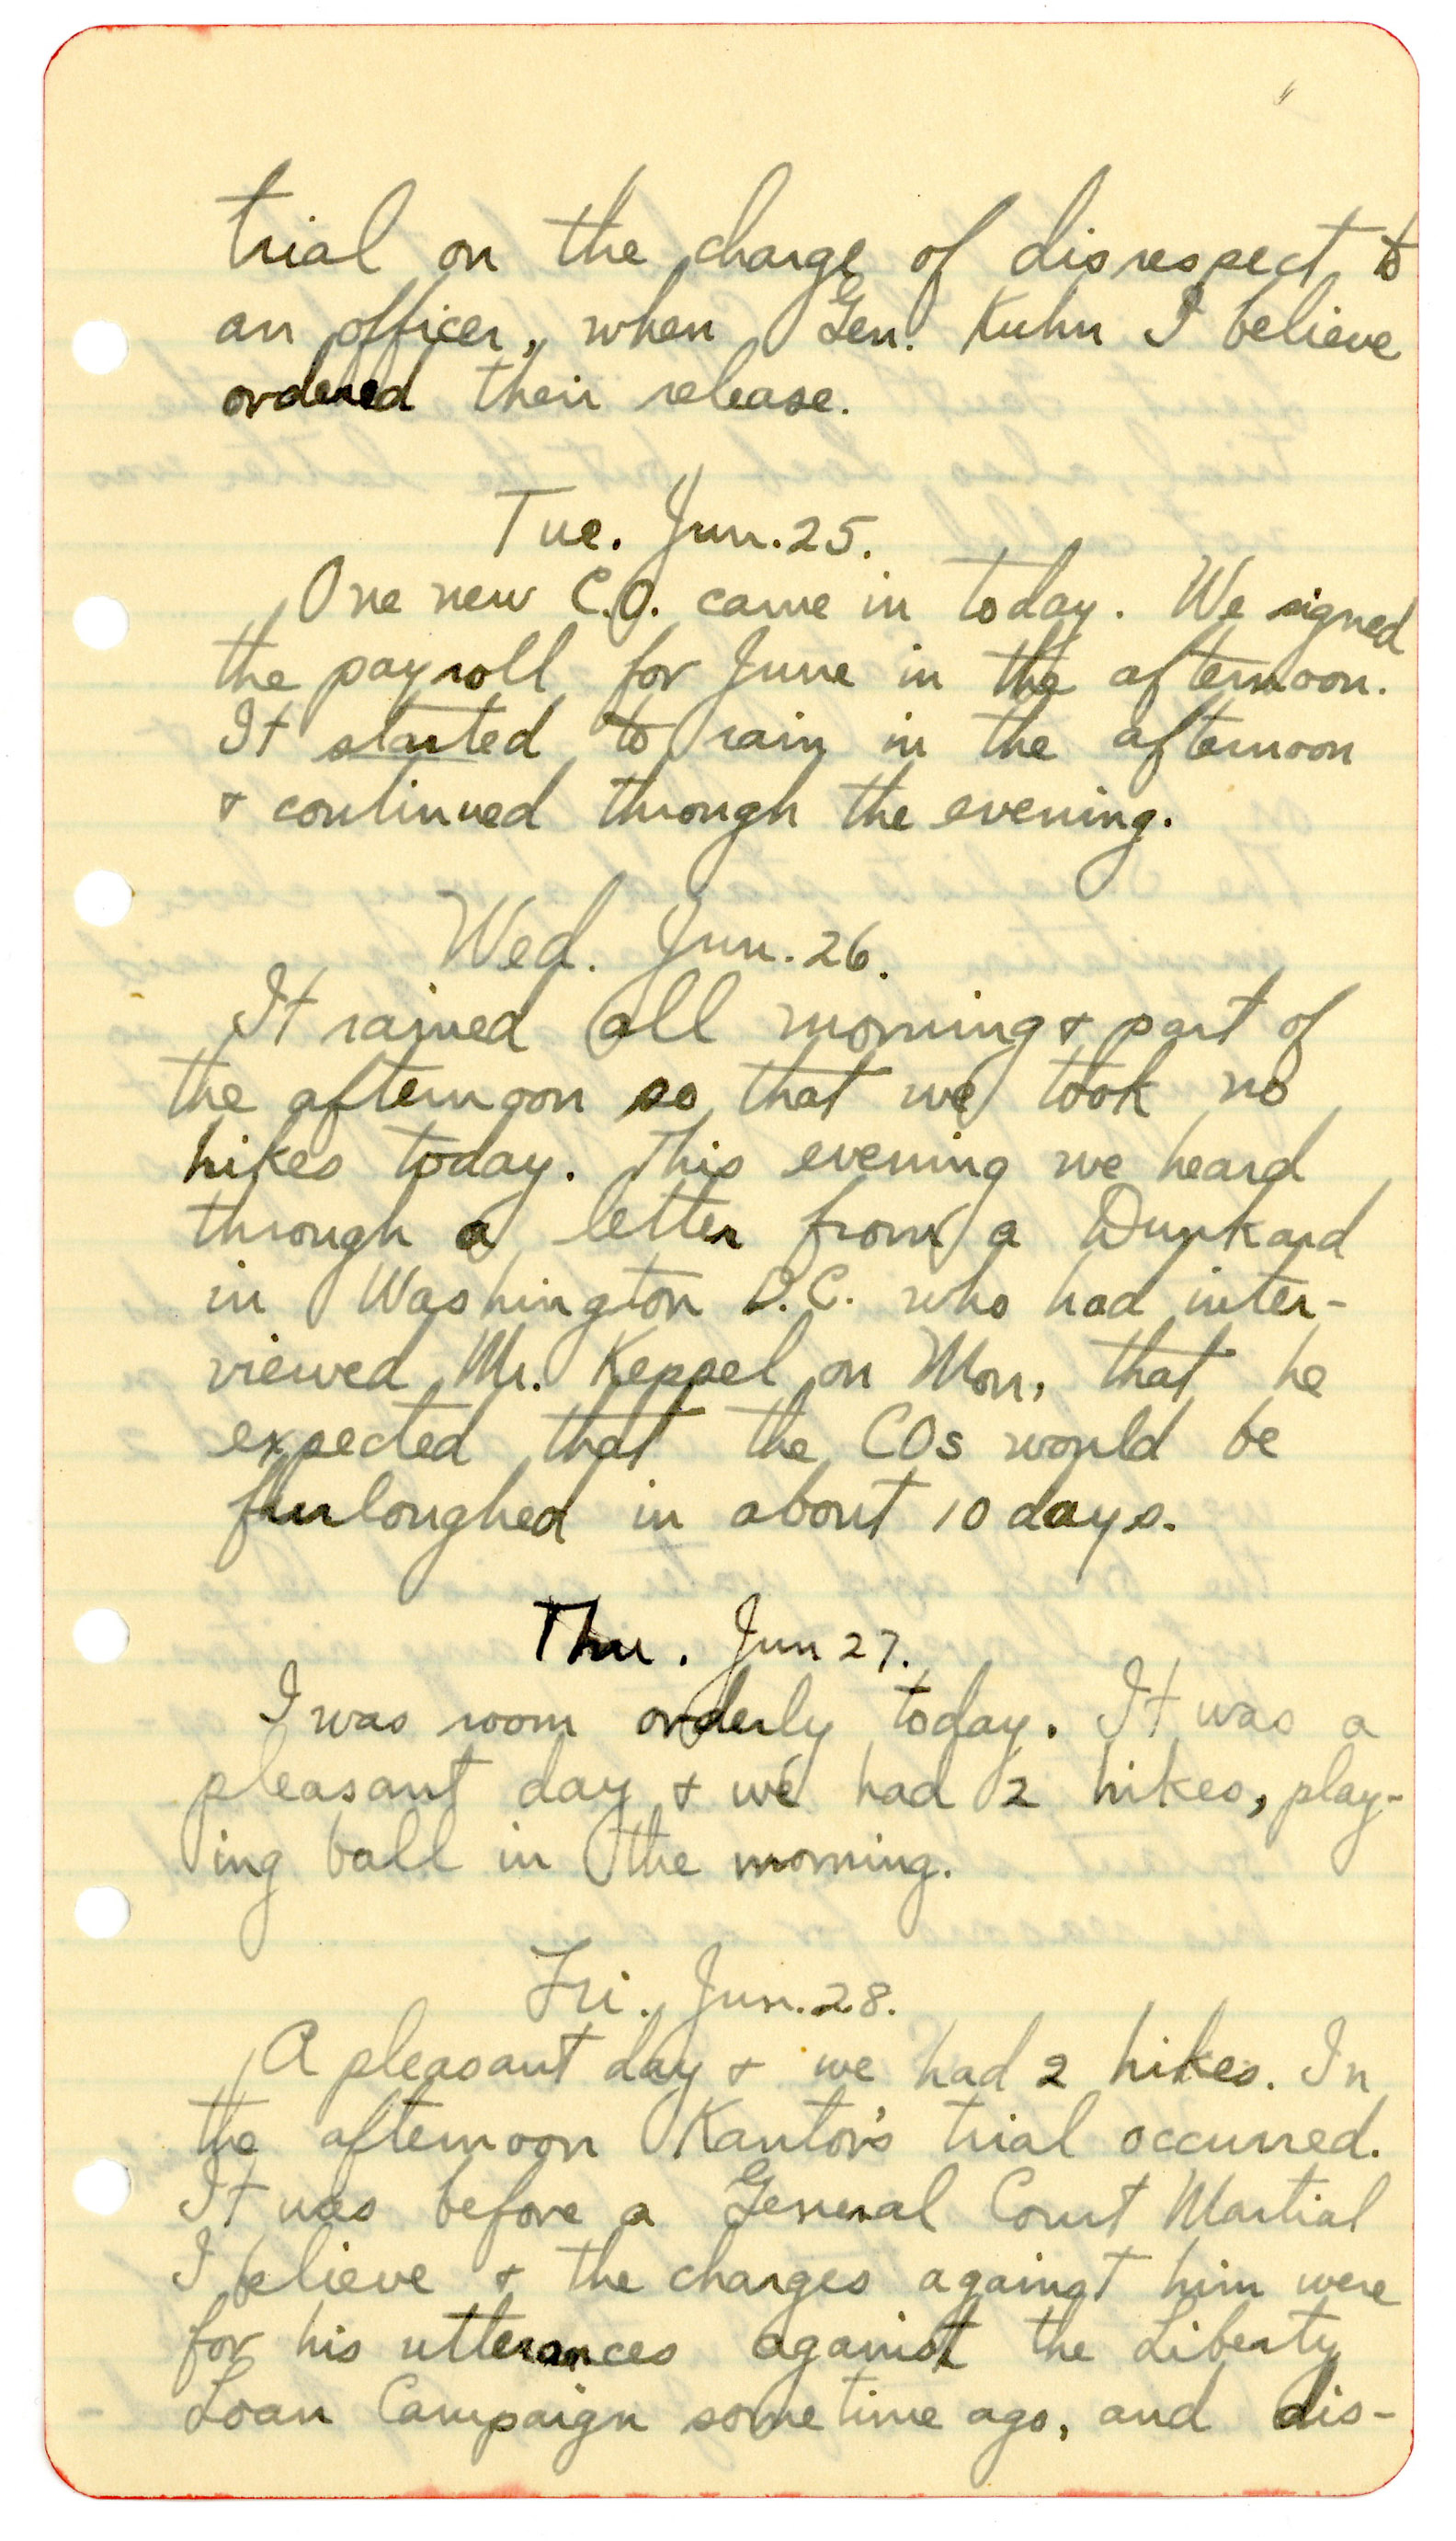 trial on the charge of disrespect to
an officer, when Gen. Kuhn I believe
ordered their release.
Tue. Jun. 25.
One new C.O. came in today. We signed
the payroll for June in the afternoon.
It started to rain in the afternoon
& continued through the evening.
Wed. Jun. 26.
It rained all morning & part of
the afternoon so that we took no
hikes today. This evening we heard
through a letter from a Dunkard
in Washington D.C. who had inter-
viewed Mr. Keppel on Mon, that he
expected that the COs would be
furloughed in about 10 days.
Thu. Jun 27.
I was room orderly today. It was a
pleasant day & we had 2 hikes, play-
ing ball in the morning.
Fri. Jun. 28.
A pleasant day & we had 2 hikes. In
the afternoon Kantor's trial occurred.
It was before a General Court Martial
I believe & the charges against him were
for his utterances against the Liberty
Loan Campaign sometime ago, and dis-